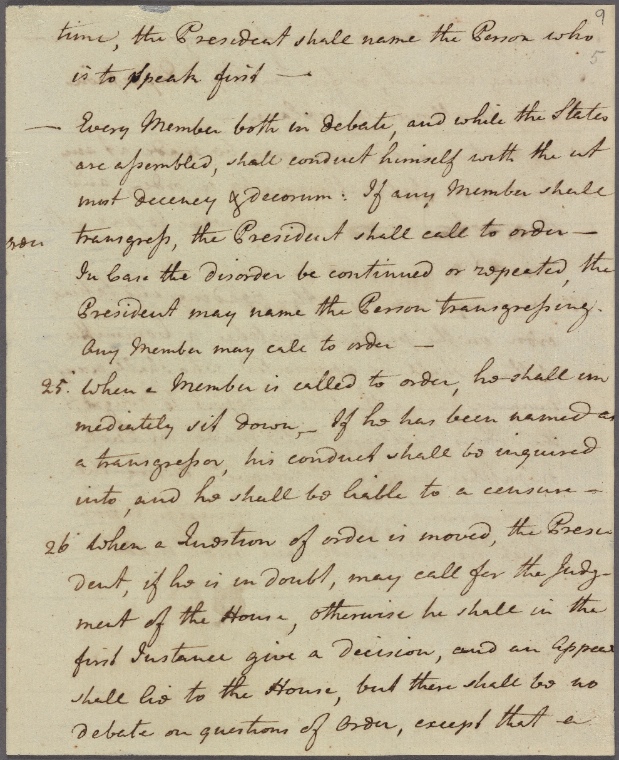 9
5
time, the President shall name the Person who
is to speak first —
— Every Member both in debate, and while the States
are assembled, shall conduct himself with the ut
most decency & decorum: If any Member shall
transgress, the President shall call to order —
In Case the disorder be continued or repeated, the
President may name the Person transgressing.
Any Member may call to order —
25. When a Member is called to order, he shall im
mediately sit down, – If he has been named as
a transgressor, his conduct shall be inquired
into, and he shall be liable to a censure –
26 When a Question of order is moved, the Presi-
dent, if he is in doubt, may call for the Judg-
ment of the House, otherwise he shall in the
first Instance give a decision, and an appeal
shall lie to the House, but there shall be no
debate on questions of Order, except that a